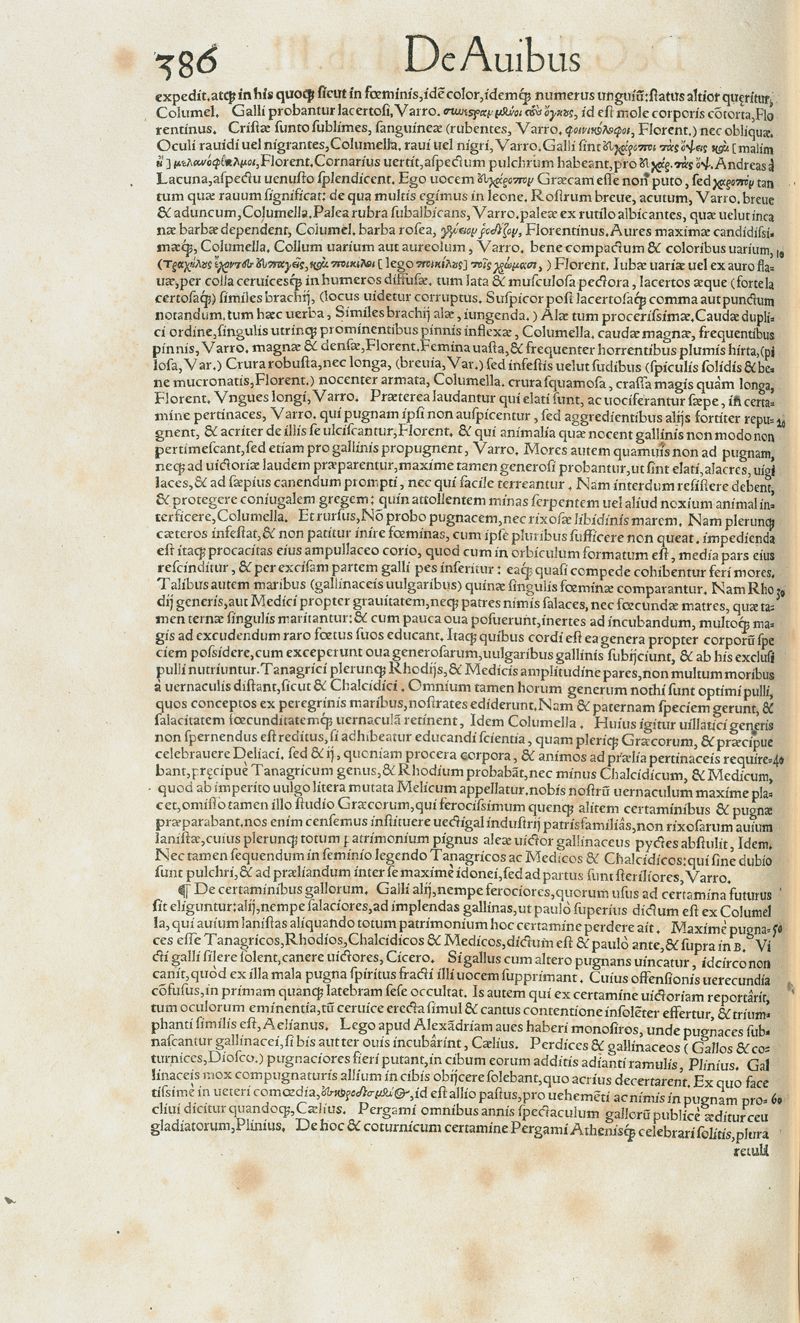 386 De Auibus
expedit. atq; in his quoq; sicut in fœminis, idē color, idemq; numerus unguiū: status altior quęritur,
Columel. Galli probantur lacertosi, Varro. id est mole corporis cōtorta, Flo
rentinus. Cristæ sunto sublimes, sanguineæ (rubentes, Varro. φοινικόλοφοι, Florent.) nec obliquæ.
Oculi rauidi uel nigrantes, Columella. raui uel nigri, Varro. Galli sint [malim
μελανόφθαλμοι, Florent. Cornarius uertit, aspectum pulchrum habeant, pro Andreas à
Lacuna, aspectu uenusto splendicent. Ego uocem Græcam esse non puto, sed χαροπὸν tan
tum quæ rauum significat: de qua multis egimus in leone. Rostrum breue, acutum, Varro. breue
& aduncum, Columella. Palea rubra subalbicans, Varro. paleæ ex rutilo albicantes, quæ uelut inca
næ barbæ dependent, Columel. barba rosea, Florentinus. Aures maximæ candidissi-
mæq;, Columella. Collum uarium aut aureolum, Varro. bene compactum & coloribus uarium, 10
(τραχήλους ἔχοντες εὐπαγεῖς, καὶ ποικίλοι [lego ποικίλους] τοῖς χρώμασι,) Florent. Iubæ uariæ uel ex auro fla-
uæ, per colla ceruicesq; in humeros diffusæ. tum lata & musculosa pectora, lacertos æque (forte la
certosaq;) similes brachij, (locus uidetur corruptus. Suspicor post lacertosaq; comma aut punctum
notandum. tum hæc uerba, Similes brachij alæ, iungenda.) Alæ tum procerissimæ. Caudæ dupli-
ci ordine, singulis utrinq; prominentibus pinnis inflexæ, Columella. caudæ magnæ, frequentibus
pinnis, Varro. magnæ & densæ, Florent. Femina uasta, & frequenter horrentibus plumis hirta, (pi
losa, Var.) Crura robusta, nec longa, (breuia, Var.) sed infestis uelut sudibus (spiculis solidis & be-
ne mucronatis, Florent.) nocenter armata, Columella. crura squamosa, crassa magis quàm longa,
Florent. Vngues longi, Varro. Præterea laudantur qui elati sunt, ac uociferantur sæpe, in certa-
mine pertinaces, Varro. qui pugnam ipsi non auspicentur, sed aggredientibus alijs fortiter repu- 20
gnent, & acriter de illis se ulciscantur, Florent. & qui animalia quæ nocent gallinis non modo non
pertimescant, sed etiam pro gallinis propugnent, Varro. Mores autem quamuis non ad pugnam,
neq; ad uictoriæ laudem præparentur, maxime tamen generosi probantur, ut sint elati, alacres, uigi
laces, & ad sæpius canendum prompti, nec qui facile terreantur. Nam interdum resistere debent,
& protegere coniugalem gregem: quin attollentem minas serpentem uel aliud noxium animal in-
terficere, Columella. Et rursus, Nō probo pugnacem, nec rixosæ libidinis marem. Nam plerunq;
cæteros infestat, & non patitur inire fœminas, cum ipse pluribus sufficere non queat. impedienda
est itaq; procacitas eius ampullaceo corio, quod cum in orbiculum formatum est, media pars eius
rescinditur, & per excisam partem galli pes inseritur: eaq; quasi compede cohibentur feri mores.
Talibus autem maribus (gallinaceis uulgaribus) quinæ singulis fœminæ comparantur. Nam Rho 30
dij generis, aut Medici propter grauitatem, neq; patres nimis salaces, nec fœcundæ matres, quæ ta-
men ternæ singulis maritantur: & cum pauca oua posuerunt, inertes ad incubandum, multoq; ma-
gis ad excudendum raro fœtus suos educant. Itaq; quibus cordi est ea genera propter corporū spe
ciem possidere, cum exceperunt oua generosarum, uulgaribus gallinis subijciunt, & ab his exclusi
pulli nutriuntur. Tanagrici plerunq; Rhodijs, & Medicis amplitudine pares, non multum moribus
à uernaculis distant, sicut & Chalcidici. Omnium tamen horum generum nothi sunt optimi pulli,
quos conceptos ex peregrinis maribus, nostrates ediderunt. Nam & paternam speciem gerunt, &
salacitatem fœcunditatemq; uernaculā retinent, Idem Columella. Huius igitur uillatici generis
non spernendus est reditus, si adhibeatur educandi scientia, quam pleriq; Græcorum, & præcipue
celebrauere Deliaci. sed & ij, quoniam procera corpora, & animos ad prælia pertinaceis require- 40
bant, pręcipuè Tanagricum genus, & Rhodium probabāt, nec minus Chalcidicum, & Medicum,
quod ab imperito uulgo litera mutata Melicum appellatur. nobis nostrū uernaculum maxime pla-
cet, omisso tamen illo studio Græcorum, qui ferocissimum quenq; alitem certaminibus & pugnæ
præparabant. nos enim censemus instituere uectigal industrij patrisfamiliâs, non rixosarum auium
lanistæ, cuius plerunq; totum patrimonium pignus aleæ uictor gallinaceus pyctes abstulit, Idem.
Nec tamen sequendum in seminio legendo Tanagricos ac Medicos & Chalcidicos: qui sine dubio
sunt pulchri, & ad præliandum inter se maximè idonei, sed ad partus sunt steriliores, Varro.
¶ De certaminibus gallorum. Galli alij, nempe ferociores, quorum usus ad certamina futurus
sit eliguntur: alij, nempe salaciores, ad implendas gallinas, ut paulò superius dictum est ex Columel
la, qui auium lanistas aliquando totum patrimonium hoc certamine perdere ait. Maximè pugna- 50
ces esse Tanagricos, Rhodios, Chalcidicos & Medicos, dictum est & paulò ante, & supra in B. Vi
cti galli silere solent, canere uictores, Cicero. Si gallus cum altero pugnans uincatur, idcirco non
canit, quod ex illa mala pugna spiritus fracti illi uocem supprimant. Cuius offensionis uerecundia
cōfusus, in primam quanq; latebram sese occultat. Is autem qui ex certamine uictoriam reportârit,
tum oculorum eminentia, tū ceruice erecta simul & cantus contentione insolēter effertur, & trium-
phanti similis est, Aelianus. Lego apud Alexādriam aues haberi monosiros, unde pugnaces sub-
nascantur gallinacei, si bis aut ter ouis incubârint, Cælius. Perdices & gallinaceos (Gallos & co-
turnices, Diosco.) pugnaciores fieri putant, in cibum eorum additis adianti ramulis, Plinius. Gal
linaceis mox compugnaturis allium in cibis obijcere solebant, quo acrius decertarent. Ex quo face
tissimè in ueteri comœdia, id est allio pastus, pro uehemēti ac nimis in pugnam pro- 60
cliui dicitur quandoq;, Cælius. Pergami omnibus annis spectaculum gallorū publicè æditur ceu
gladiatorum, Plinius. De hoc & coturnicum certamine Pergami Athenisq; celebrari solitis, plura
retuli